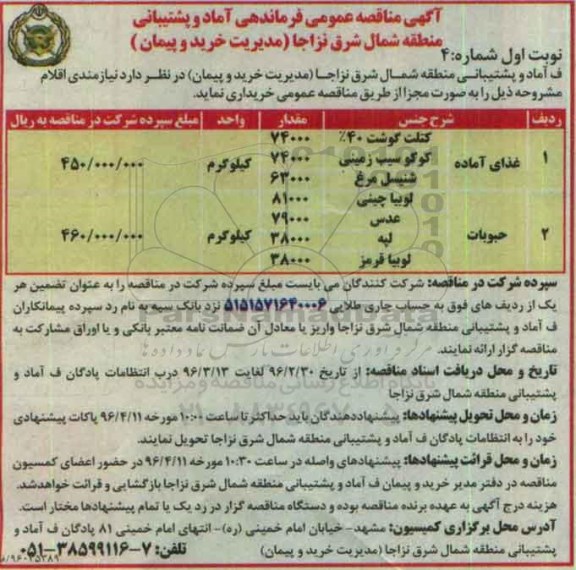 آگهی مناقصه عمومی فرماندهی آماد و پشتیبانی
منطقه شمال شرق نزاجا (مدیریت خرید و پیمان )
نوبت اول شماره:۴
ف آماد و پشتیبانی منطقه شمال شرق نزاجا (مدیریت خرید و پیمان) در نظر دارد نیازمندی اقلام
مشروحه ذیل را به صورت مجزا از طریق مناقصه عمومی خریداری نماید.
ردیف شرح جنس مقدار واحد مبلغ سپرده شرکت در مناقصه به ریال
۱ غذای آماده کیلوگرم ۴۵۰/۰۰۰/۰۰۰
کتلت گوشت ۴۰٪ ۷۴۰۰۰
کوکو سیب زمینی ۷۴۰۰۰
شنیسل مرغ ۶۳۰۰۰
۲ حبوبات کیلوگرم ۴۶۰/۰۰۰/۰۰۰
لوبیا چیتی ۸۱۰۰۰
عدس ۷۹۰۰۰
لپه ۳۸۰۰۰
لوبیا قرمز ۳۸۰۰۰
سپرده شرکت در مناقصه: شرکت کنندگان می بایست مبلغ سپرده شرکت در مناقصه را به عنوان تضمین هر
یک از ردیف های فوق به حساب جاری طلایی ۵۱۵۱۵۷۱۶۴۰۰۰۶ نزد بانک سپه به نام رد سپرده پیمانکاران
ف آماد و پشتیبانی منطقه شمال شرق نزاجا واریز یا معادل آن ضمانت نامه معتبر بانکی و یا اوراق مشارکت به
مناقصه گزار ارائه نمایند.
تاریخ و محل دریافت اسناد مناقصه: از تاریخ ۹۶/۲/۳۰ لغایت ۹۶/۳/۱۳ درب انتظامات پادگان ف آماد و
پشتیبانی منطقه شمال شرق نزاجا
زمان و محل تحویل پیشنهادها: پیشنهاددهندگان باید حداکثر تا ساعت ۱۰:۰۰ مورخه ۹۶/۴/۱۱ پاکات پیشنهادی
خود را به انتظامات پادگان ف آماد و پشتیبانی منطقه شمال شرق نزاجا تحویل نمایند.
زمان و محل قرائت پیشنهادها: پیشنهادهای واصله در ساعت ۱۰:۳۰ مورخه ۹۶/۴/۱۱ در حضور اعضای کمسیون
مناقصه در دفتر مدیر خرید و پیمان ف آماد و پشتیبانی منطقه شمال شرق نزاجا بازگشایی و قرائت خواهد شد.
هزینه درج آگهی به عهده برنده مناقصه بوده و دستگاه مناقصه گزار در رد یک یا تمام پیشنهادها مختار است.
آدرس محل برگزاری کمیسیون: مشهد- خیابان امام خمینی (ره)- انتهای امام خمینی ۸۱ پادگان ف آماد و
پشتیبانی منطقه شمال شرق نزاجا (مدیریت خرید و پیمان) تلفن: ۷-۳۸۵۹۹۱۱۶-۰۵۱